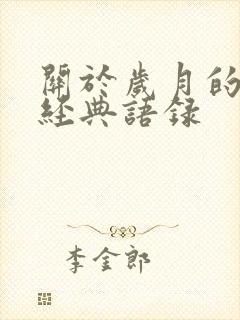 關於歲月的
經典語录
李金郎